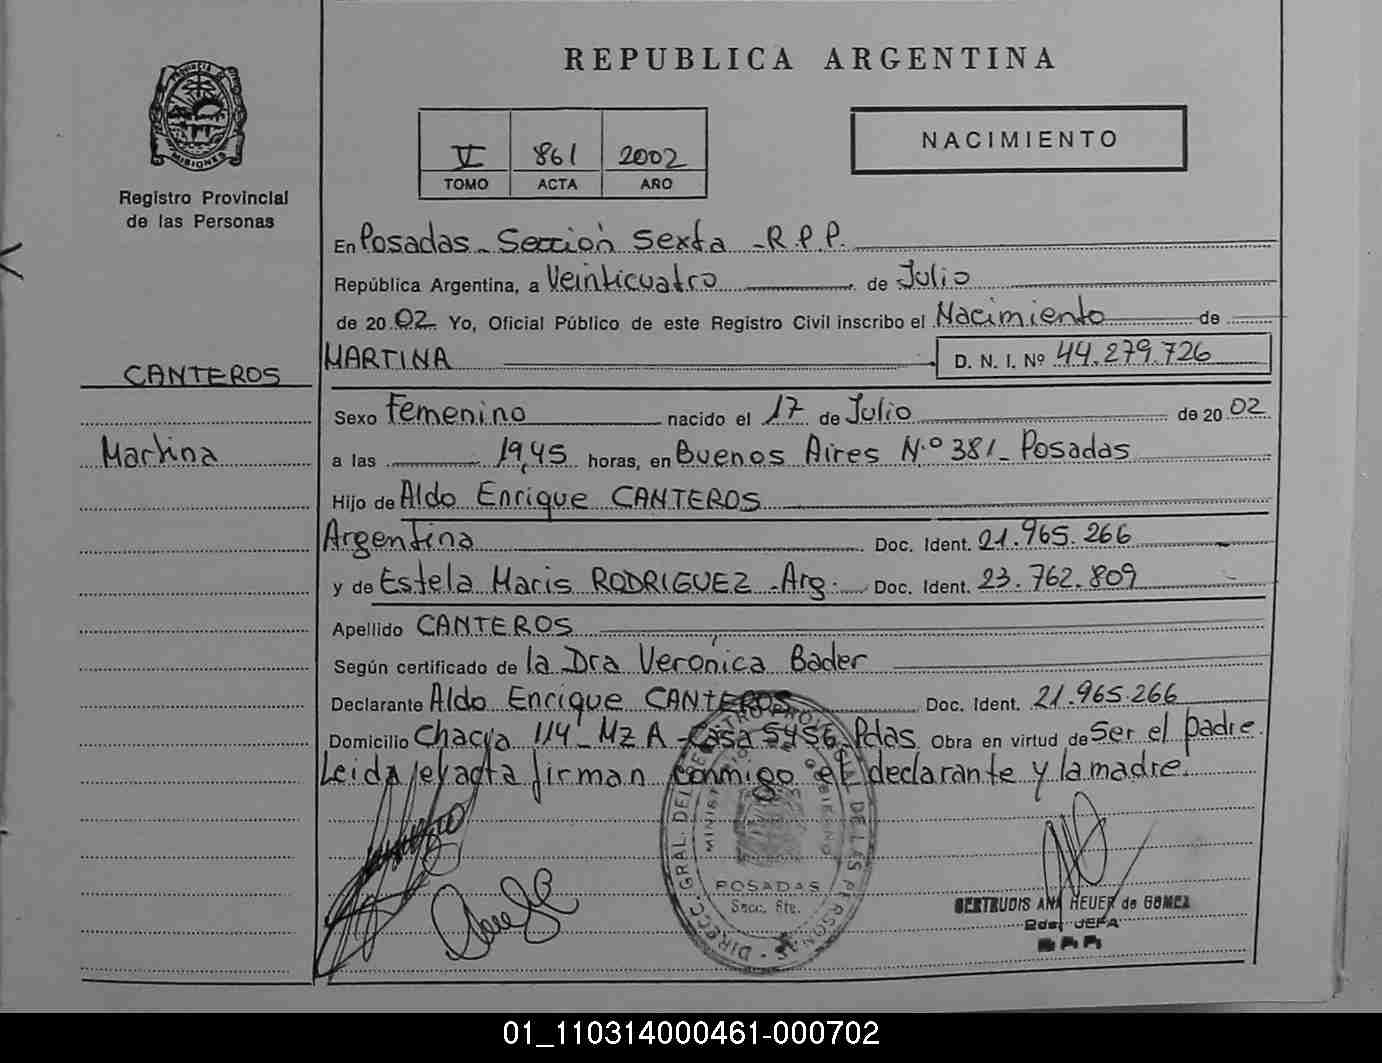 REPUBLICA ARGENTINA
PROVINCIA DE
MISIONES
Registro Provincial
de las Personas
V 861 2002
TOMO ACTA AÑO
NACIMIENTO
En Posadas - Sección Sexta - R.P.P.
República Argentina, a Veinticuatro de Julio
de 2002 Yo, Oficial Público de este Registro Civil inscribo el Nacimiento de
CANTEROS
MARTINA D. N. I. Nº 44.279.726
Sexo Femenino nacido el 17 de Julio de 2002
Martina
a las 19,45 horas, en Buenos Aires N.º 381 - Posadas
Hijo de Aldo Enrique CANTEROS
Argentina Doc. Ident. 21.965.266
y de Estela Maris RODRIGUEZ - Arg. Doc. Ident. 23.762.809
Apellido CANTEROS
Según certificado de la Dra Verónica Bader
Declarante Aldo Enrique CANTEROS Doc. Ident. 21.965.266
Domicilio Chacra 114 - Mz A - Casa 5456 - Pdas. Obra en virtud de Ser el padre.
Leida el acta firman conmigo el declarante y la madre.
DIRECC. GRAL. DEL REGISTRO PROVINCIAL DE LAS PERSONAS
MINISTERIO DE GOBIERNO
POSADAS
Secc. 6ta.
GERTRUDIS ANA HEUER de GOMEZ
JEFA
01_110314000461-000702